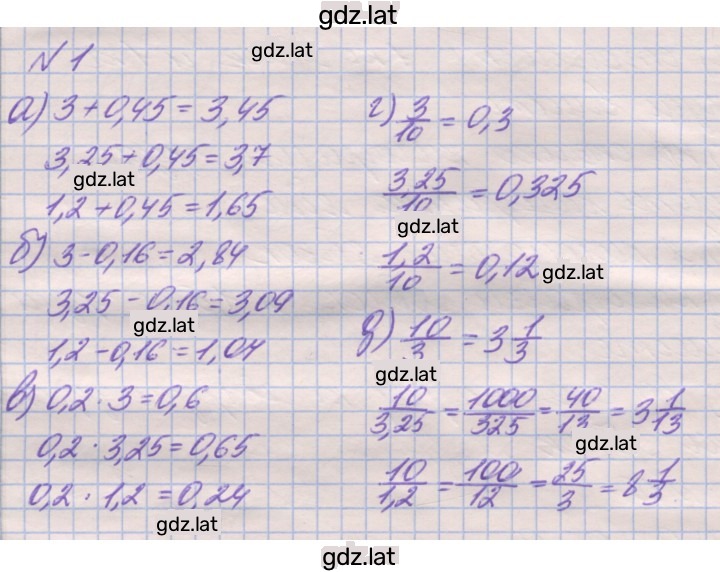 gdz.lat
№ 1
gdz.lat
а) 3 + 0,45 = 3,45
3,25 + 0,45 = 3,7
gdz.lat
1,2 + 0,45 = 1,65
б) 3 - 0,16 = 2,84
3,25 - 0,16 = 3,09
gdz.lat
1,2 - 0,16 = 1,04
в) 0,2 · 3 = 0,6
0,2 · 3,25 = 0,65
0,2 · 1,2 = 0,24
gdz.lat
г) 3/10 = 0,3
3,25/10 = 0,325
gdz.lat
1,2/10 = 0,12
gdz.lat
д) 10/3 = 3 1/3
gdz.lat
10/3,25 = 1000/325 = 40/13 = 3 1/13
gdz.lat
10/1,2 = 100/12 = 25/3 = 8 1/3
gdz.lat